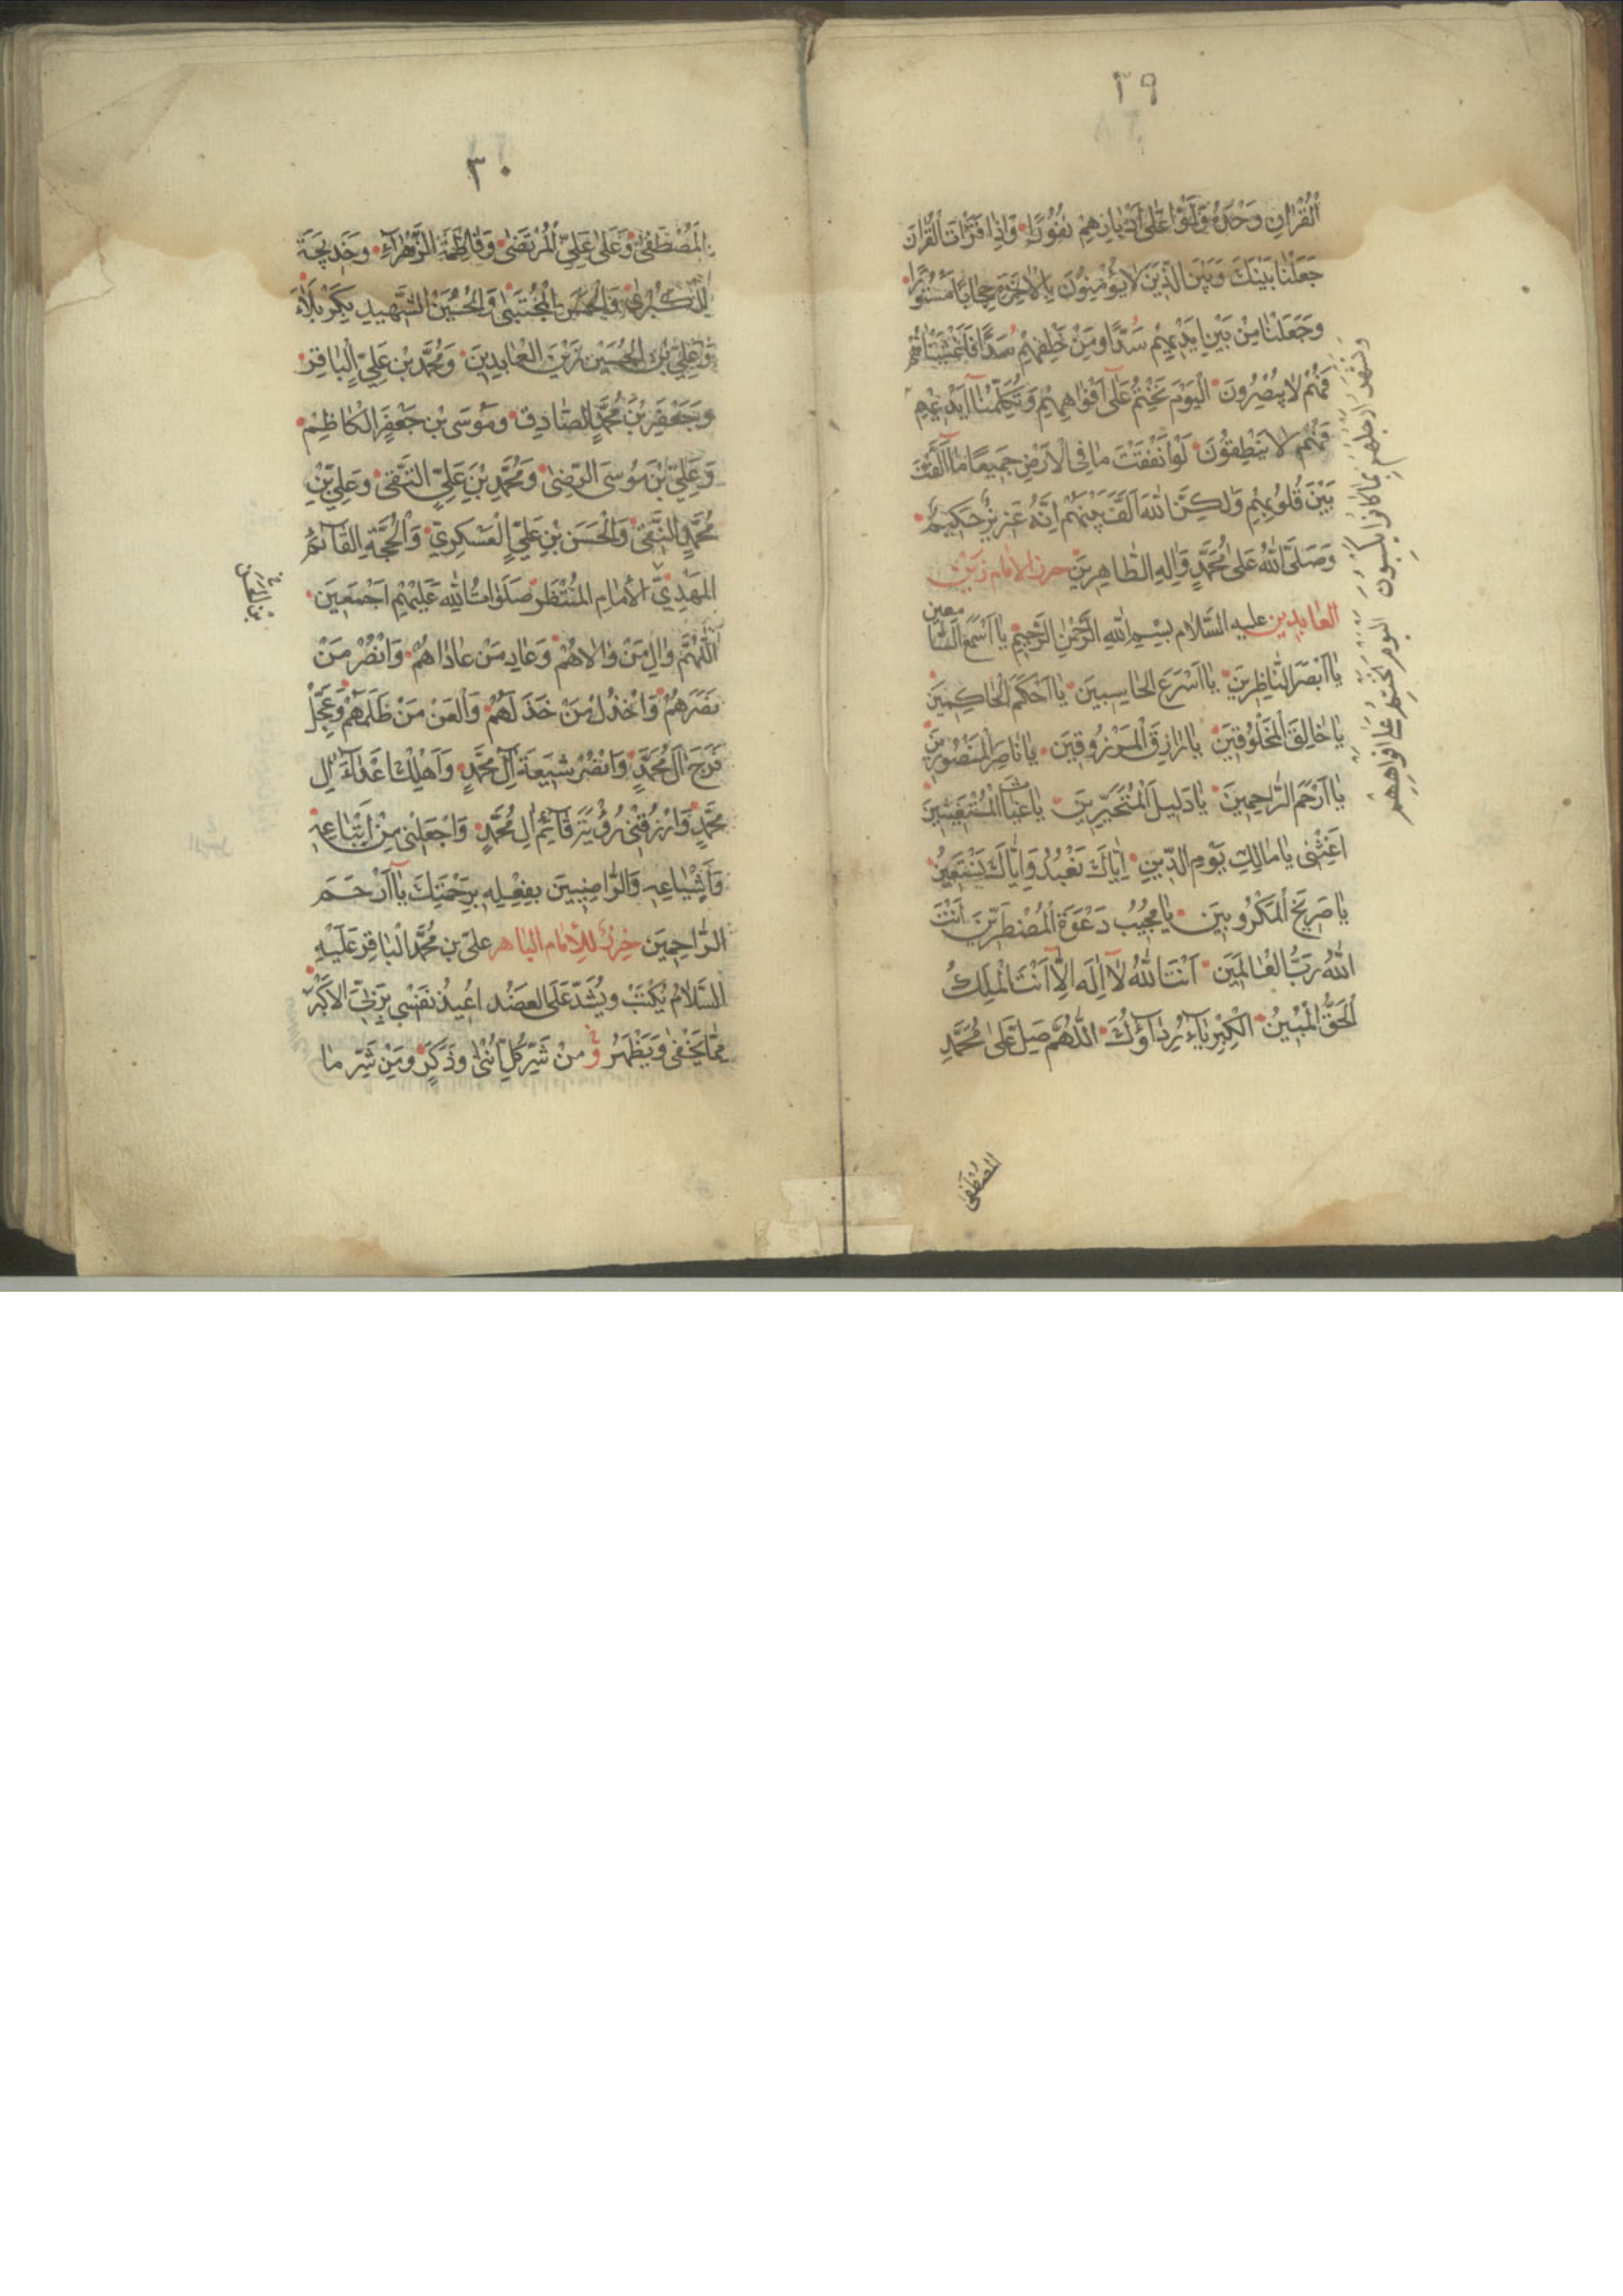 ٢٩
الْقُرْانِ وَحْدَهُ وَلَّوْا عَلٰى اَدْبَارِهِمْ نُفُورًا وَاِذَا قَرَاْتَ الْقُرْانَ
جَعَلْنَا بَيْنَكَ وَبَيْنَ الَّذِينَ لَا يُؤْمِنُونَ بِالْاٰخِرَةِ حِجَابًا مَسْتُورًا
وَجَعَلْنَا مِنْ بَيْنِ اَيْدِيهِمْ سَدًّا وَمِنْ خَلْفِهِمْ سَدًّا فَاَغْشَيْنَاهُمْ
فَهُمْ لَا يُبْصِرُونَ اَلْيَوْمَ نَخْتِمُ عَلٰى اَفْوَاهِهِمْ وَتُكَلِّمُنَا اَيْدِيهِمْ
فَهُمْ لَا يَنْطِقُونَ لَوْ اَنْفَقْتَ مَا فِى الْاَرْضِ جَمِيعًا مَا اَلَّفْتَ
بَيْنَ قُلُوبِهِمْ وَلٰكِنَّ اللهَ اَلَّفَ بَيْنَهُمْ اِنَّهُ عَزِيزٌ حَكِيمٌ
وَصَلَّى اللهُ عَلٰى مُحَمَّدٍ وَاٰلِهِ الطَّاهِرِينَ حرز الامام زين
العابدين عليه السَّلام بِسْمِ اللهِ الرَّحْمٰنِ الرَّحِيمِ يَا اَسْمَعَ السَّامعين
يَا اَبْصَرَ النَّاظِرِينَ يَا اَسْرَعَ الحَاسِبِينَ يَا اَحْكَمَ الْحَاكِمِينَ
يَا خَالِقَ الْمَخْلُوقِينَ يَا رَازِقَ الْمَرْزُوقِينَ يَا نَاصِرَ الْمَنْصُورِينَ
يَا اَرْحَمَ الرَّاحِمِينَ يَا دَلِيلَ الْمُتَحَيِّرِينَ يَا غِيَاثَ الْمُسْتَغِيثِينَ
اَغِثْنِى يَا مَالِكَ يَوْمِ الدِّينِ اِيَّاكَ نَعْبُدُ وَاِيَّاكَ نَسْتَعِينُ
يَا صَرِيخَ الْمَكْرُوبِينَ يَا مُجِيبَ دَعْوَةِ الْمُضْطَرِّينَ اَنْتَ
اللهُ رَبُّ الْعَالَمِينَ اَنْتَ اللهُ لَا اِلٰهَ اِلَّا اَنْتَ الْمَلِكُ
الْحَقُّ الْمُبِينُ الْكِبْرِيَاءُ رِدَاؤُكَ اَللّٰهُمَّ صَلِّ عَلٰى مُحَمَّدٍ
وتشهد ارجلهم بما كانوا يكسبون اليوم نختم على افواههم
المصطفى
٣٠
الْمُصْطَفٰى وَعَلٰى عَلِىٍّ الْمُرْتَضٰى وَفَاطِمَةَ الزَّهْرَاءِ وَخَدِيجَةَ
الْكُبْرٰى وَالْحَسَنِ الْمُجْتَبٰى وَالْحُسَيْنِ الشَّهِيدِ بِكَرْبَلَاءَ
وَعَلِىِّ بْنِ الْحُسَيْنِ زَيْنِ الْعَابِدِينَ وَمُحَمَّدِ بْنِ عَلِىٍّ الْبَاقِرِ
وَجَعْفَرِ بْنِ مُحَمَّدٍ الصَّادِقِ وَمُوسَى بْنِ جَعْفَرٍ الْكَاظِمِ
وَعَلِىِّ بْنِ مُوسَى الرِّضٰى وَمُحَمَّدِ بْنِ عَلِىٍّ التَّقِى وَعَلِىِّ بْنِ
مُحَمَّدٍ النَّقِى وَالْحَسَنِ بْنِ عَلِىٍّ الْعَسْكَرِىِّ وَالْحُجَّةِ الْقَائِمِ
الْمَهْدِىِّ الْاِمَامِ الْمُنْتَظَرِ صَلَوَاتُ اللهِ عَلَيْهِمْ اَجْمَعِينَ
اَللّٰهُمَّ وَالِ مَنْ وَالَاهُمْ وَعَادِ مَنْ عَادَاهُمْ وَانْصُرْ مَنْ
نَصَرَهُمْ وَاخْذُلْ مَنْ خَذَلَهُمْ وَالْعَنْ مَنْ ظَلَمَهُمْ وَعَجِّلْ
فَرَجَ اٰلِ مُحَمَّدٍ وَانْصُرْ شِيعَةَ اٰلِ مُحَمَّدٍ وَاَهْلِكْ اَعْدَاءَ اٰلِ
مُحَمَّدٍ وَارْزُقْنِى رُؤْيَةَ قَائِمِ اٰلِ مُحَمَّدٍ وَاجْعَلْنِى مِنْ اَتْبَاعِهِ
وَاَشْيَاعِهِ وَالرَّاضِينَ بِفِعْلِهِ بِرَحْمَتِكَ يَا اَرْحَمَ
الرَّاحِمِينَ حرز للامام الباهر على بن مُحَمَّد الْبَاقِرِ عَلَيْهِ
السَّلَامُ يُكْتَبُ وَيُشَدُّ عَلَى الْعَضُدِ اُعِيذُ نَفْسِى بِرَبِّىَ الْاَكْبَرِ
مِمَّا يَخْفٰى وَيَظْهَرُ وَمِنْ شَرِّ كُلِّ اُنْثٰى وَذَكَرٍ وَمِنْ شَرِّ مَا